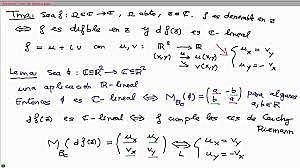 Teorema: Sea f: Ω ⊆ ℂ → ℂ, Ω abto, z ∈ ℂ. f es derivable en z
⟺ f es difble en z y df(z) es ℂ-lineal
f = u + iv con u, v: ℝ² → ℝ
(x,y) → u(x,y)
(x,y) → v(x,y)
{ u_x = v_y
u_y = -v_x
Lema: Sea φ: ℂ≅ℝ² → ℂ≅ℝ²
una aplicación ℝ-lineal
Entonces φ es ℂ-lineal ⟺ M_{Bc}(φ) = (a -b / b a) para algunos a, b ∈ ℝ
df(z) es ℂ-lineal ⟺ f cumple las ec de Cauchy
Riemann
M_{Bc}(df(z)) = (u_x u_y / v_x v_y) ⟺ { u_x = v_y
L
u_y = -v_x